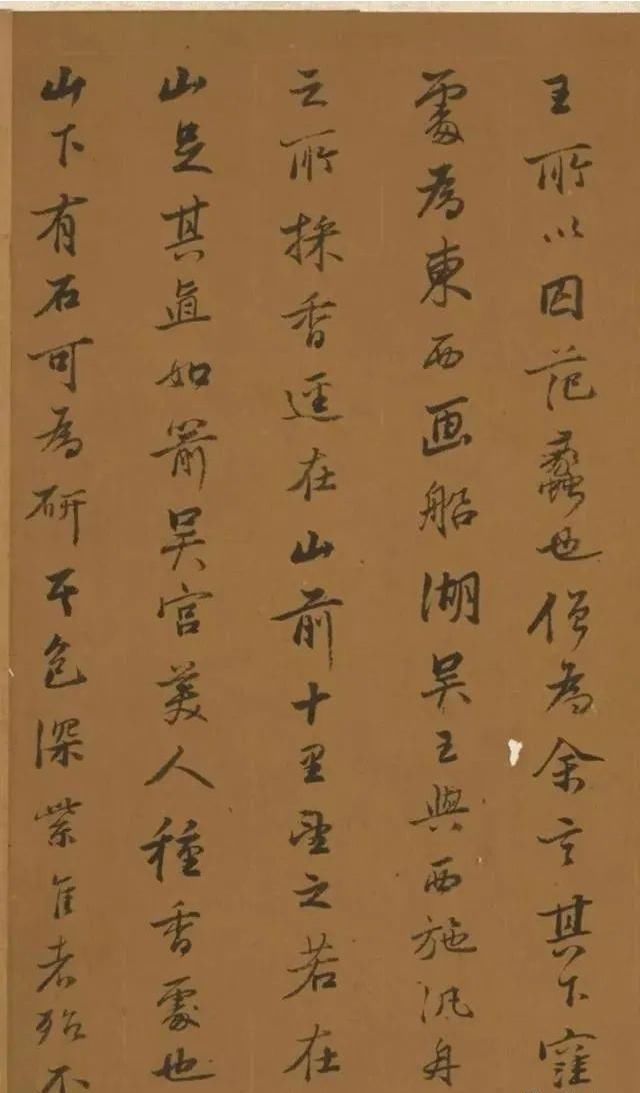 王所以囚范蠡也僧為余言其下窪
處為東西画船湖吴王與西施汎舟
之所採香逕在山前十里望之若在
山足其直如箭吴宫美人種香處也
山下有石可為研其色深紫佳者殆不